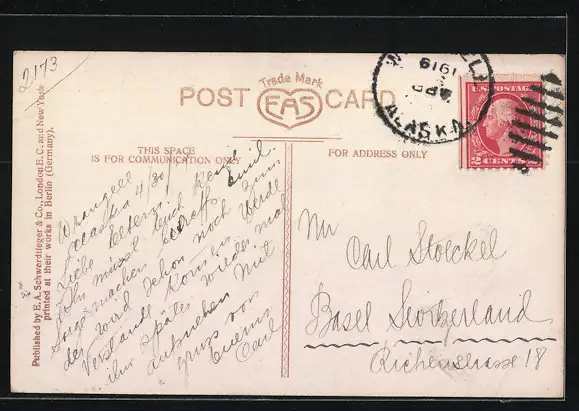 2173
Trade Mark
POST EAS CARD
WRANGEL
1919
APR
ALASKA
U.S. POSTAGE
2 CENTS 2
THIS SPACE
IS FOR COMMUNICATION ONLY
FOR ADDRESS ONLY
Published by E. A. Schwerdtfeger & Co., London E. C. and New York
printed at their works in Berlin (Germany).
Wrangell
Alaska 4/30/19
Liebe Eltern.
Ihr müsst Euch kein
Sorge machen betreffs Emil.
der wird schon noch zum
Verstande kommen werde
ihn später wieder mal
aufnehmen Mit
Gruss von
Eurem
Carl
Mr
Carl Stoeckel
Basel Switzerland
Richenstrasse 18